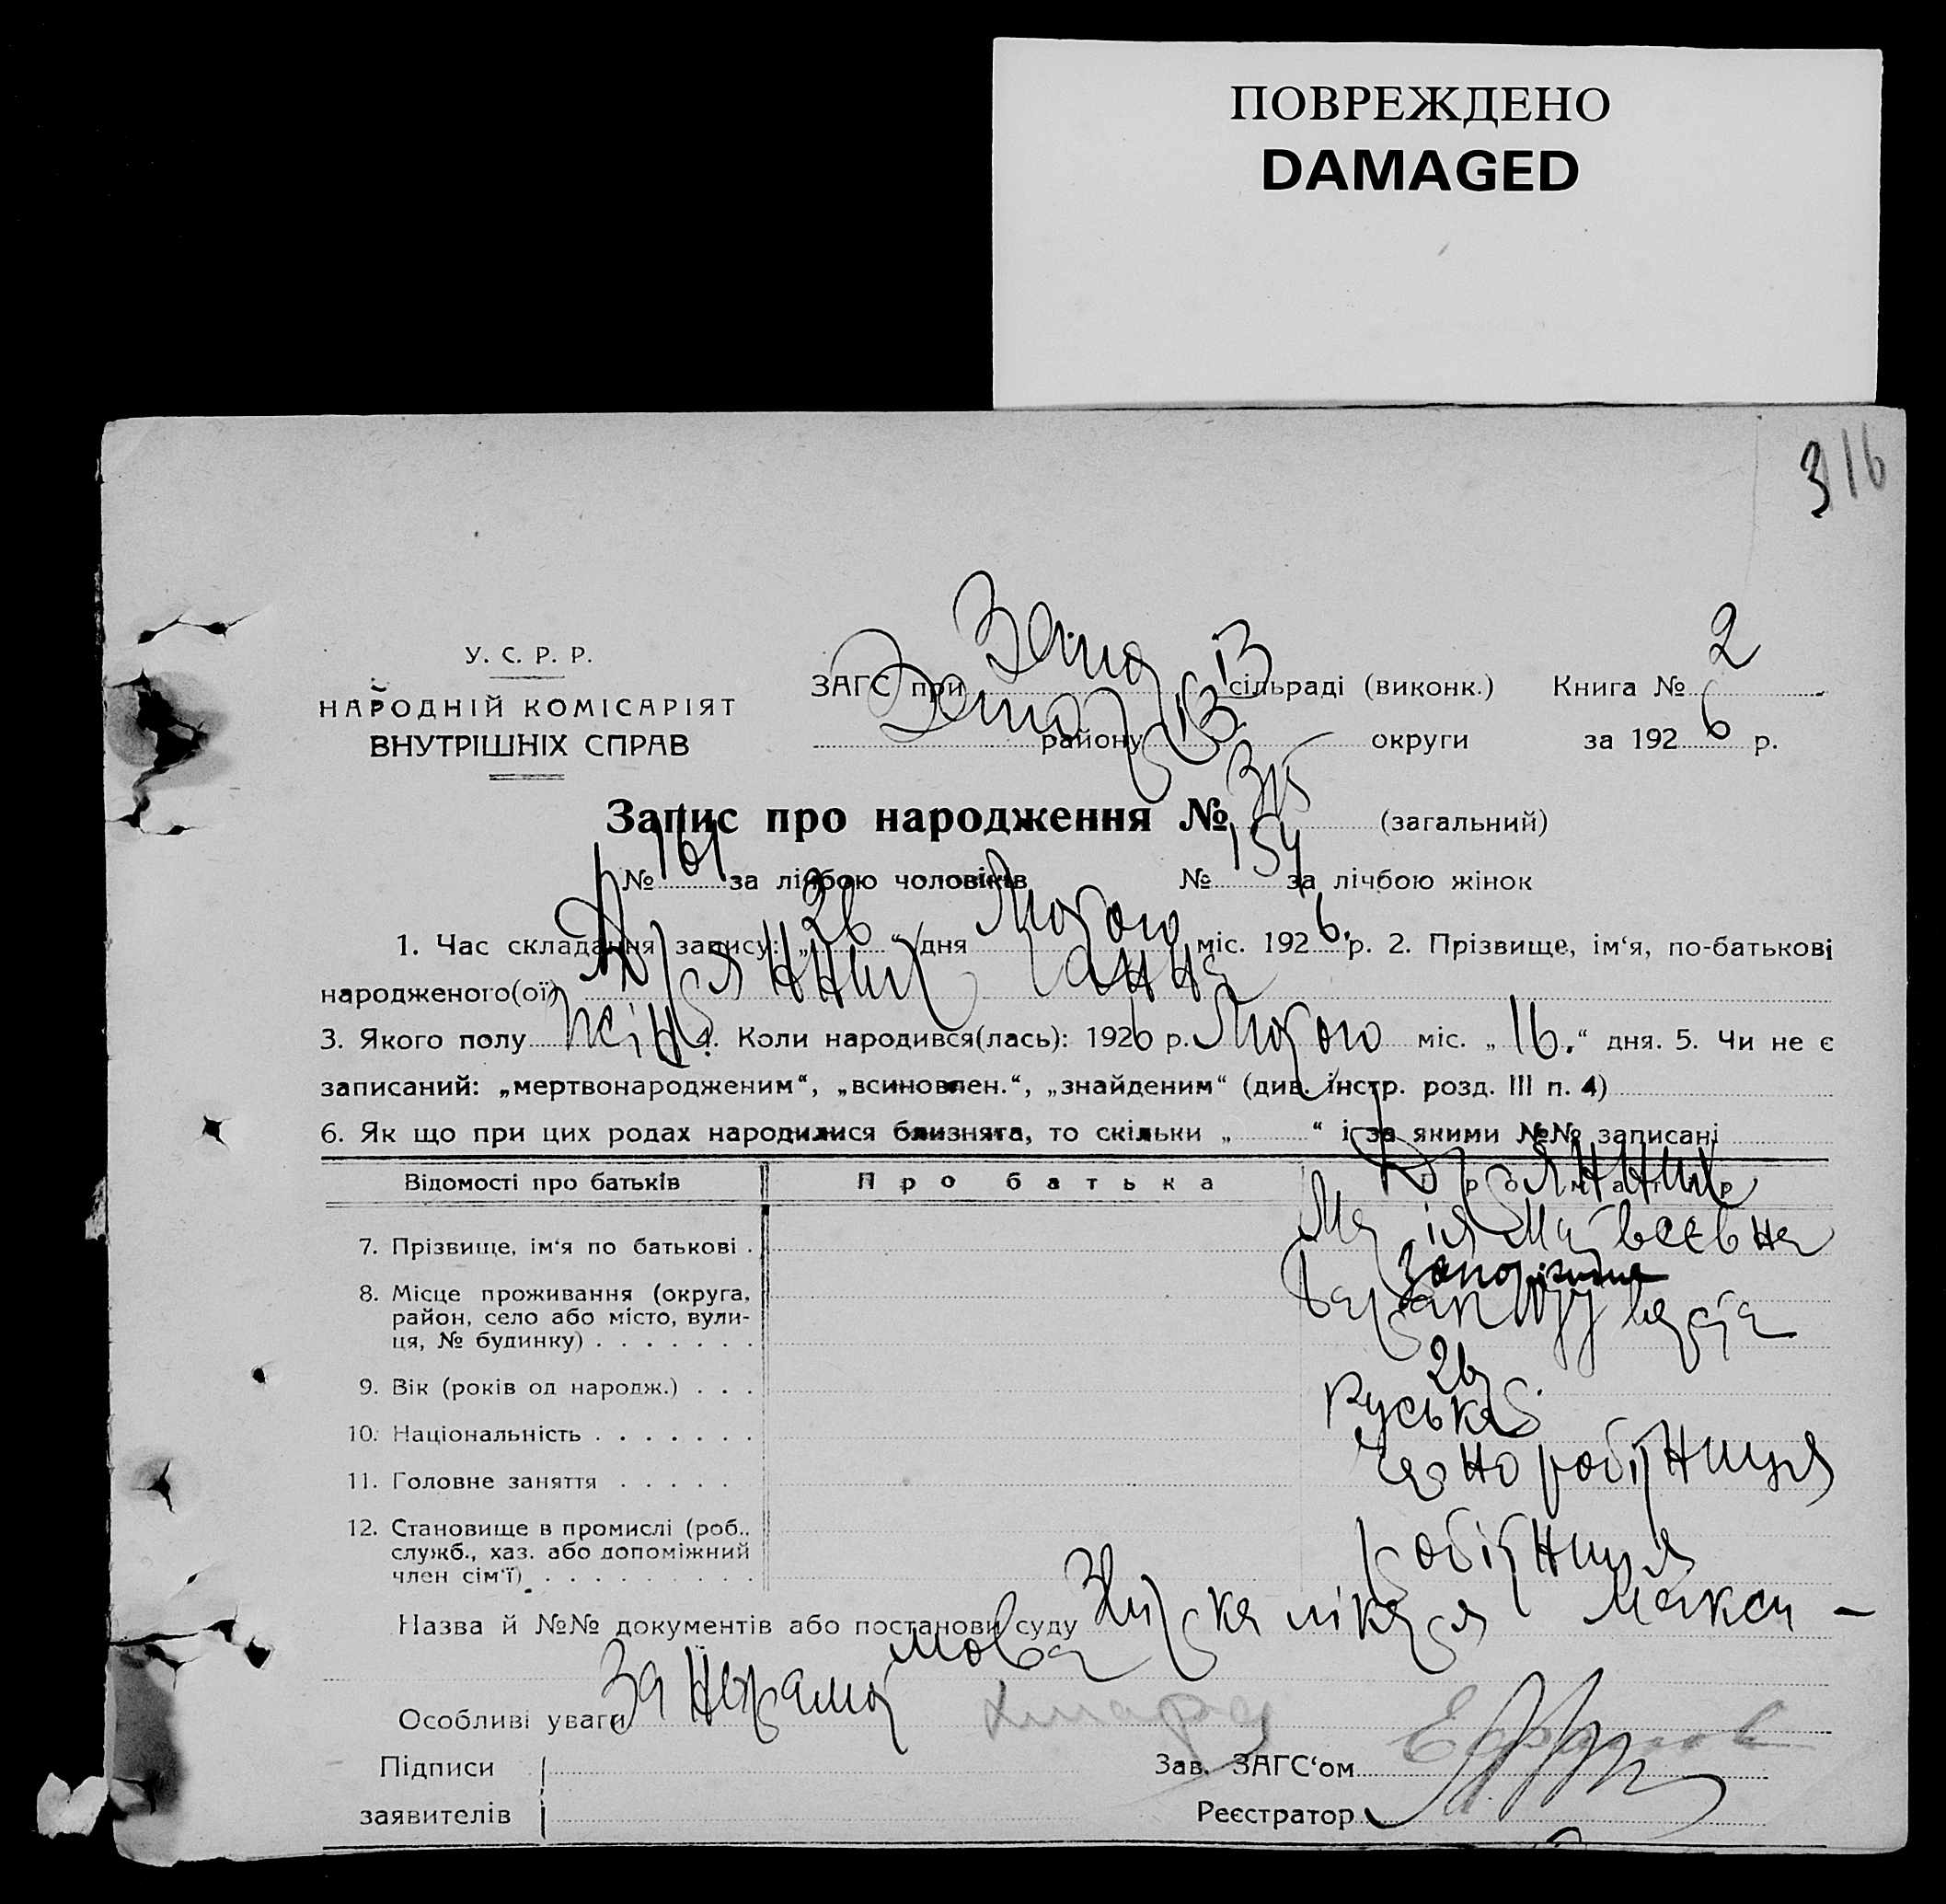 ПОВРЕЖДЕНО
DAMAGED
316
У. С. Р. Р.
НАРОДНІЙ КОМІСАРІЯТ
ВНУТРІШНІХ СПРАВ
ЗАГС при сільраді (виконк.) Книга № 2
району округи за 1926 р.
Запис про народження № 315 (загальний)
№ 161 за лічбою чоловіків № 154 за лічбою жінок
1. Час складання запису: „26“ дня Лютого міс. 1926 р. 2. Прізвище, ім‘я, по-батькові
народженого(ої) Ганна
3. Якого полу Жін. 4. Коли народився(лась): 1926 р. Лютого міс. „16.“ дня. 5. Чи не є
записаний: „мертвонародженим“, „всиновлен.“, „знайденим“ (див. інстр. розд. III п. 4)
6. Як що при цих родах народилися близнята, то скільки „ “ і за якими №№ записані
Відомості про батьків Про батька Про матір
7. Прізвище, ім‘я по батькові . Марія Матвеєвна
8. Місце проживання (округа,
район, село або місто, вули-
ця, № будинку) . . . . . . .
9. Вік (років од народж.) . . . 26
10. Національність . . . . . . . Руська
11. Головне заняття . . . . . Чорноробітниця
12. Становище в промислі (роб.,
служб., хаз. або допоміжний
член сім‘ї) . . . . . . . . . робітниця
Назва й №№ документів або постанови суду лікаря Макси-
мова
Особливі уваги За
Підписи Зав. ЗАГС‘ом
заявителів Реєстратор